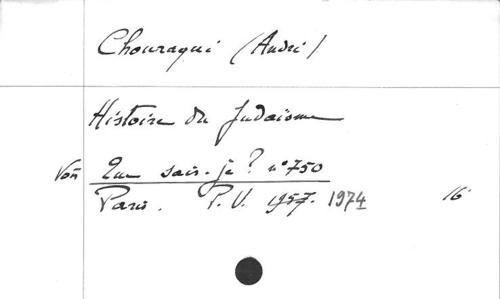 Chouraqui (André)
Histoire du Judaïsme
Von Que sais-je? n° 750
Paris. P.U. 1957. 1974 16